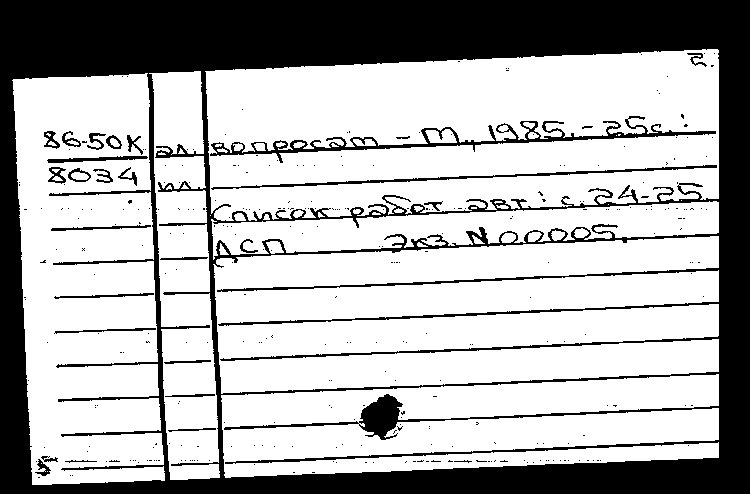 2.
86-50К ал. вопросам – М., 1985. – 25с.:
8034 ил.
Список работ авт.: с. 24-25.
ДСП Экз. N 00005.
5